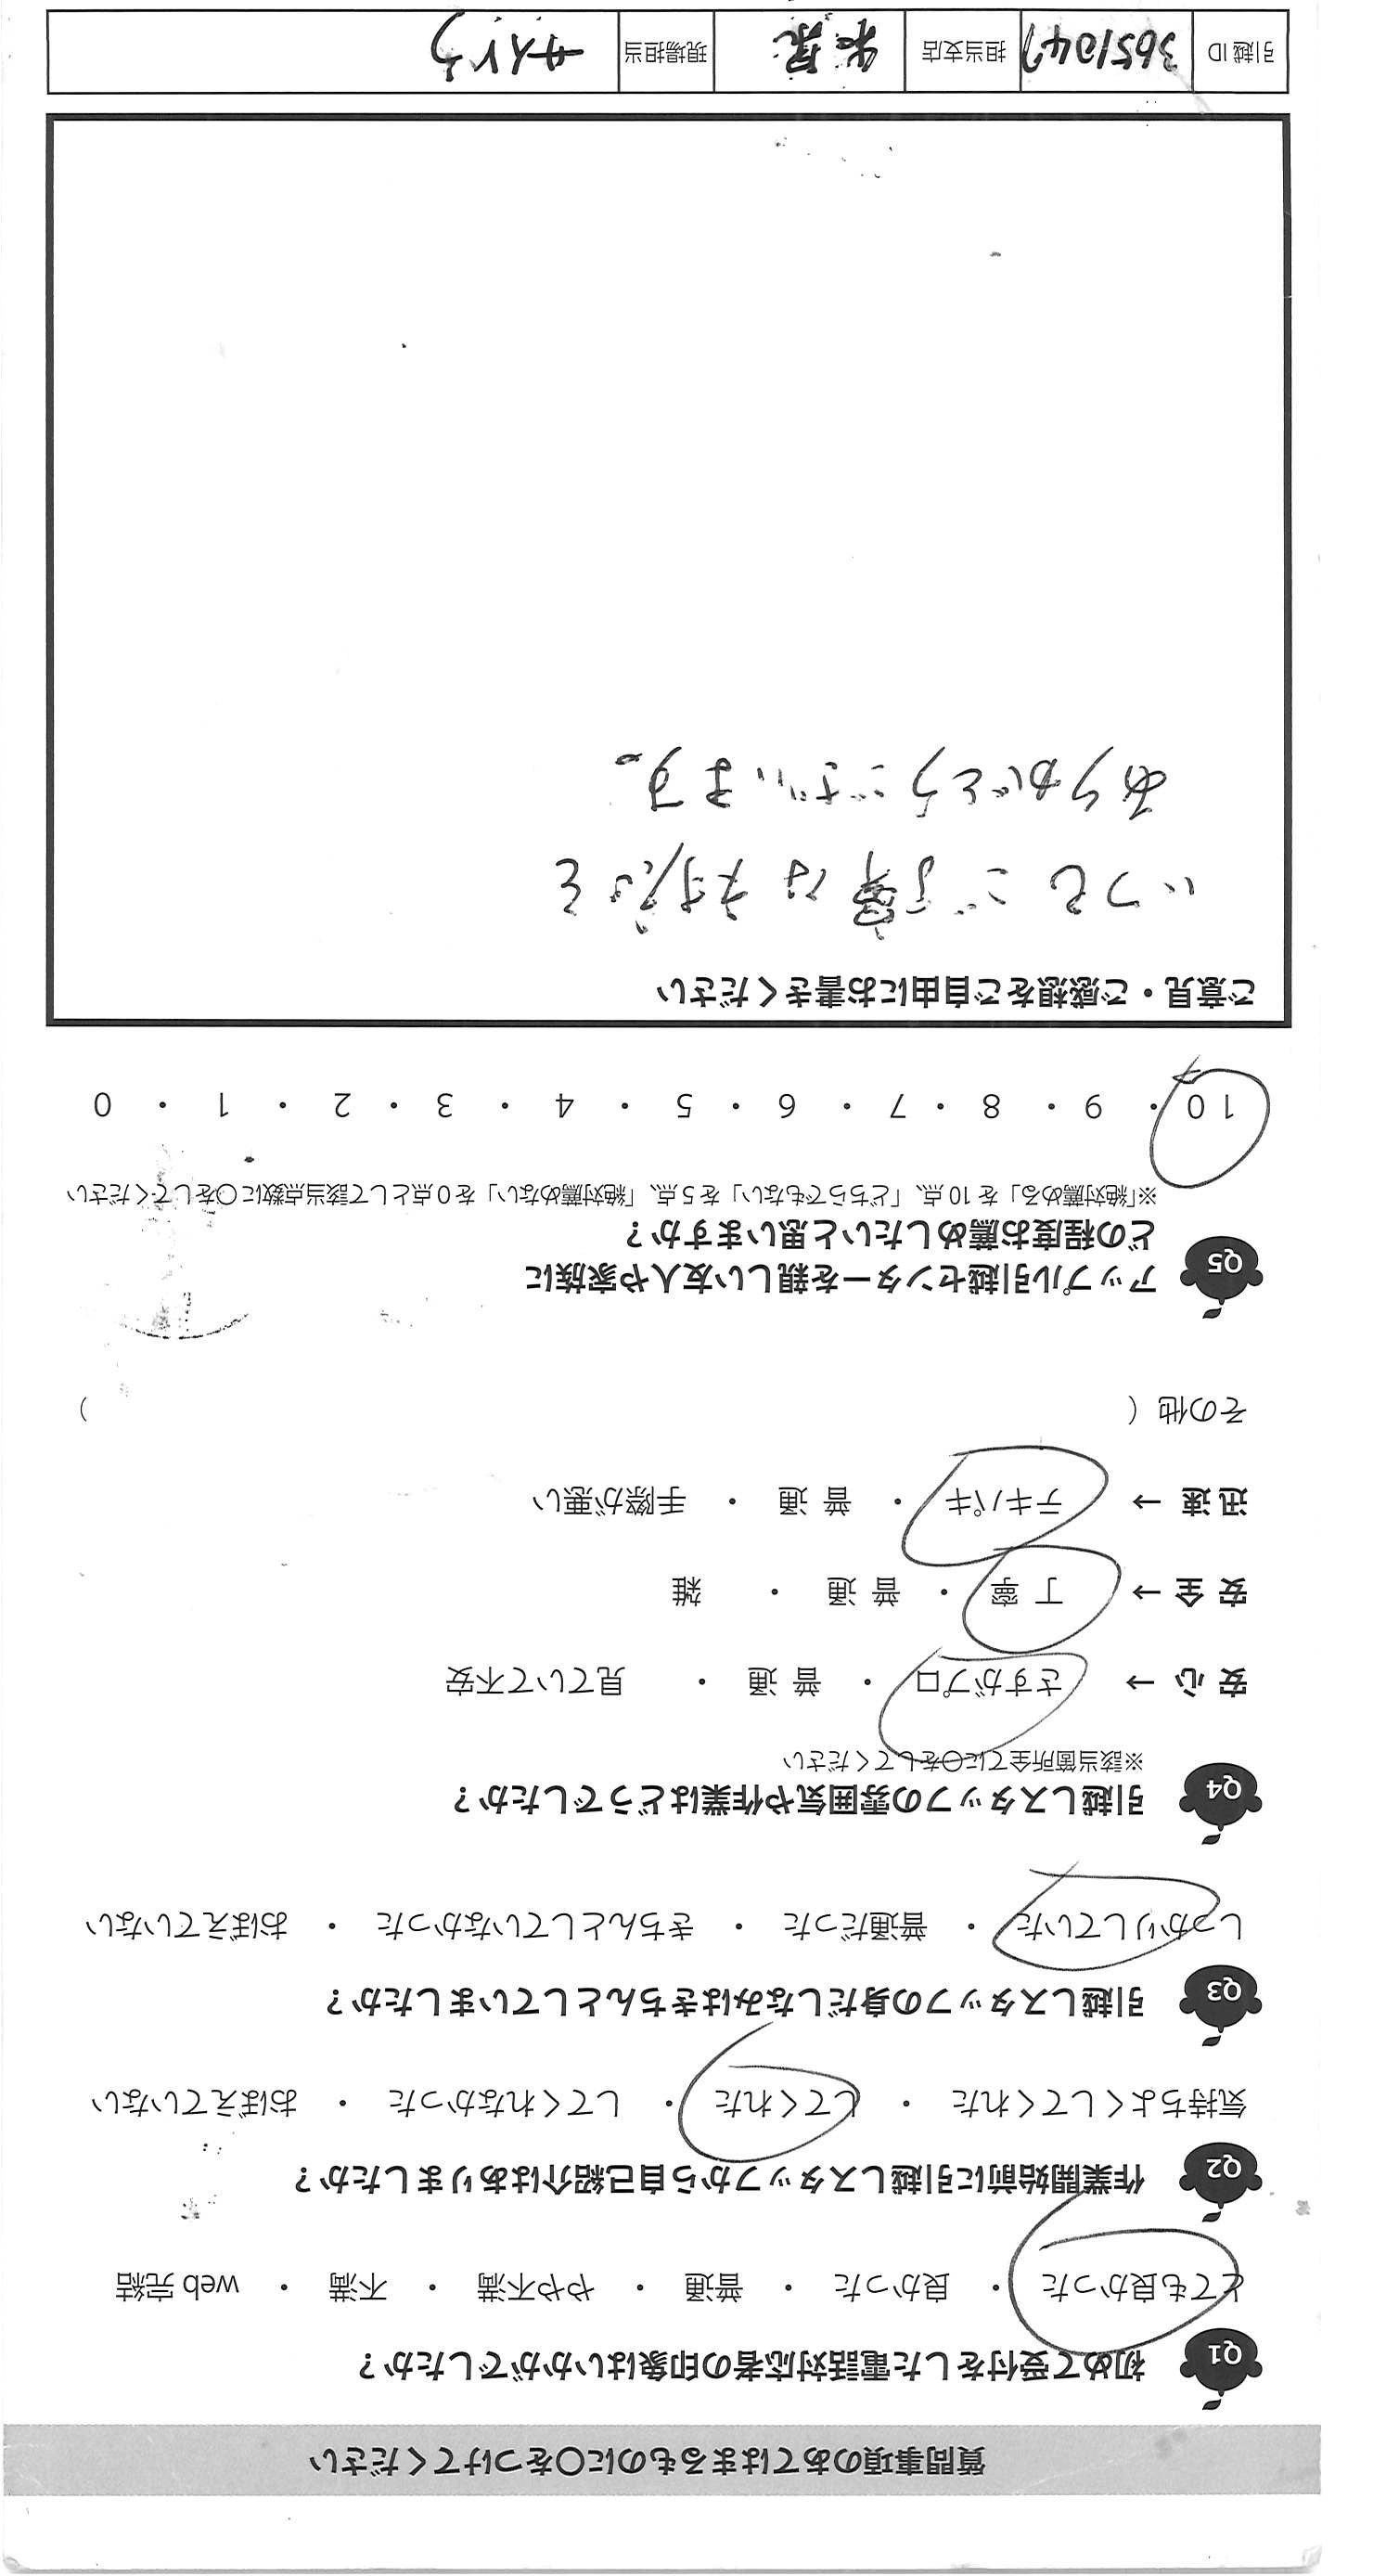 質問事項のあてはまるものに○をつけてください
Q1 初めて受付をした電話対応者の印象はいかがでしたか？
とても良かった ・ 良かった ・ 普通 ・ やや不満 ・ 不満 ・ web 完結
Q2 作業開始前に引越しスタッフから自己紹介はありましたか？
気持ちよくしてくれた ・ してくれた ・ してくれなかった ・ おぼえていない
Q3 引越しスタッフの身だしなみはきちんとしていましたか？
しっかりしていた ・ 普通だった ・ きちんとしていなかった ・ おぼえていない
Q4 引越しスタッフの雰囲気や作業はどうでしたか？
※該当箇所全てに○をしてください
安 心 → さすがプロ ・ 普 通 ・ 見ていて不安
安 全 → 丁 寧 ・ 普 通 ・ 雑
迅 速 → テキパキ ・ 普 通 ・ 手際が悪い
その他（ ）
Q5 アップル引越センターを親しい友人や家族に
どの程度お薦めしたいと思いますか？
※「絶対薦める」を 10 点、「どちらでもない」を 5 点、「絶対薦めない」を 0 点として該当点数に○をしてください
10 ・ 9 ・ 8 ・ 7 ・ 6 ・ 5 ・ 4 ・ 3 ・ 2 ・ 1 ・ 0
ご意見・ご感想をご自由にお書きください
いつもご丁寧な対応を
ありがとうございます。
引越 ID 3651047 担当支店 現場担当